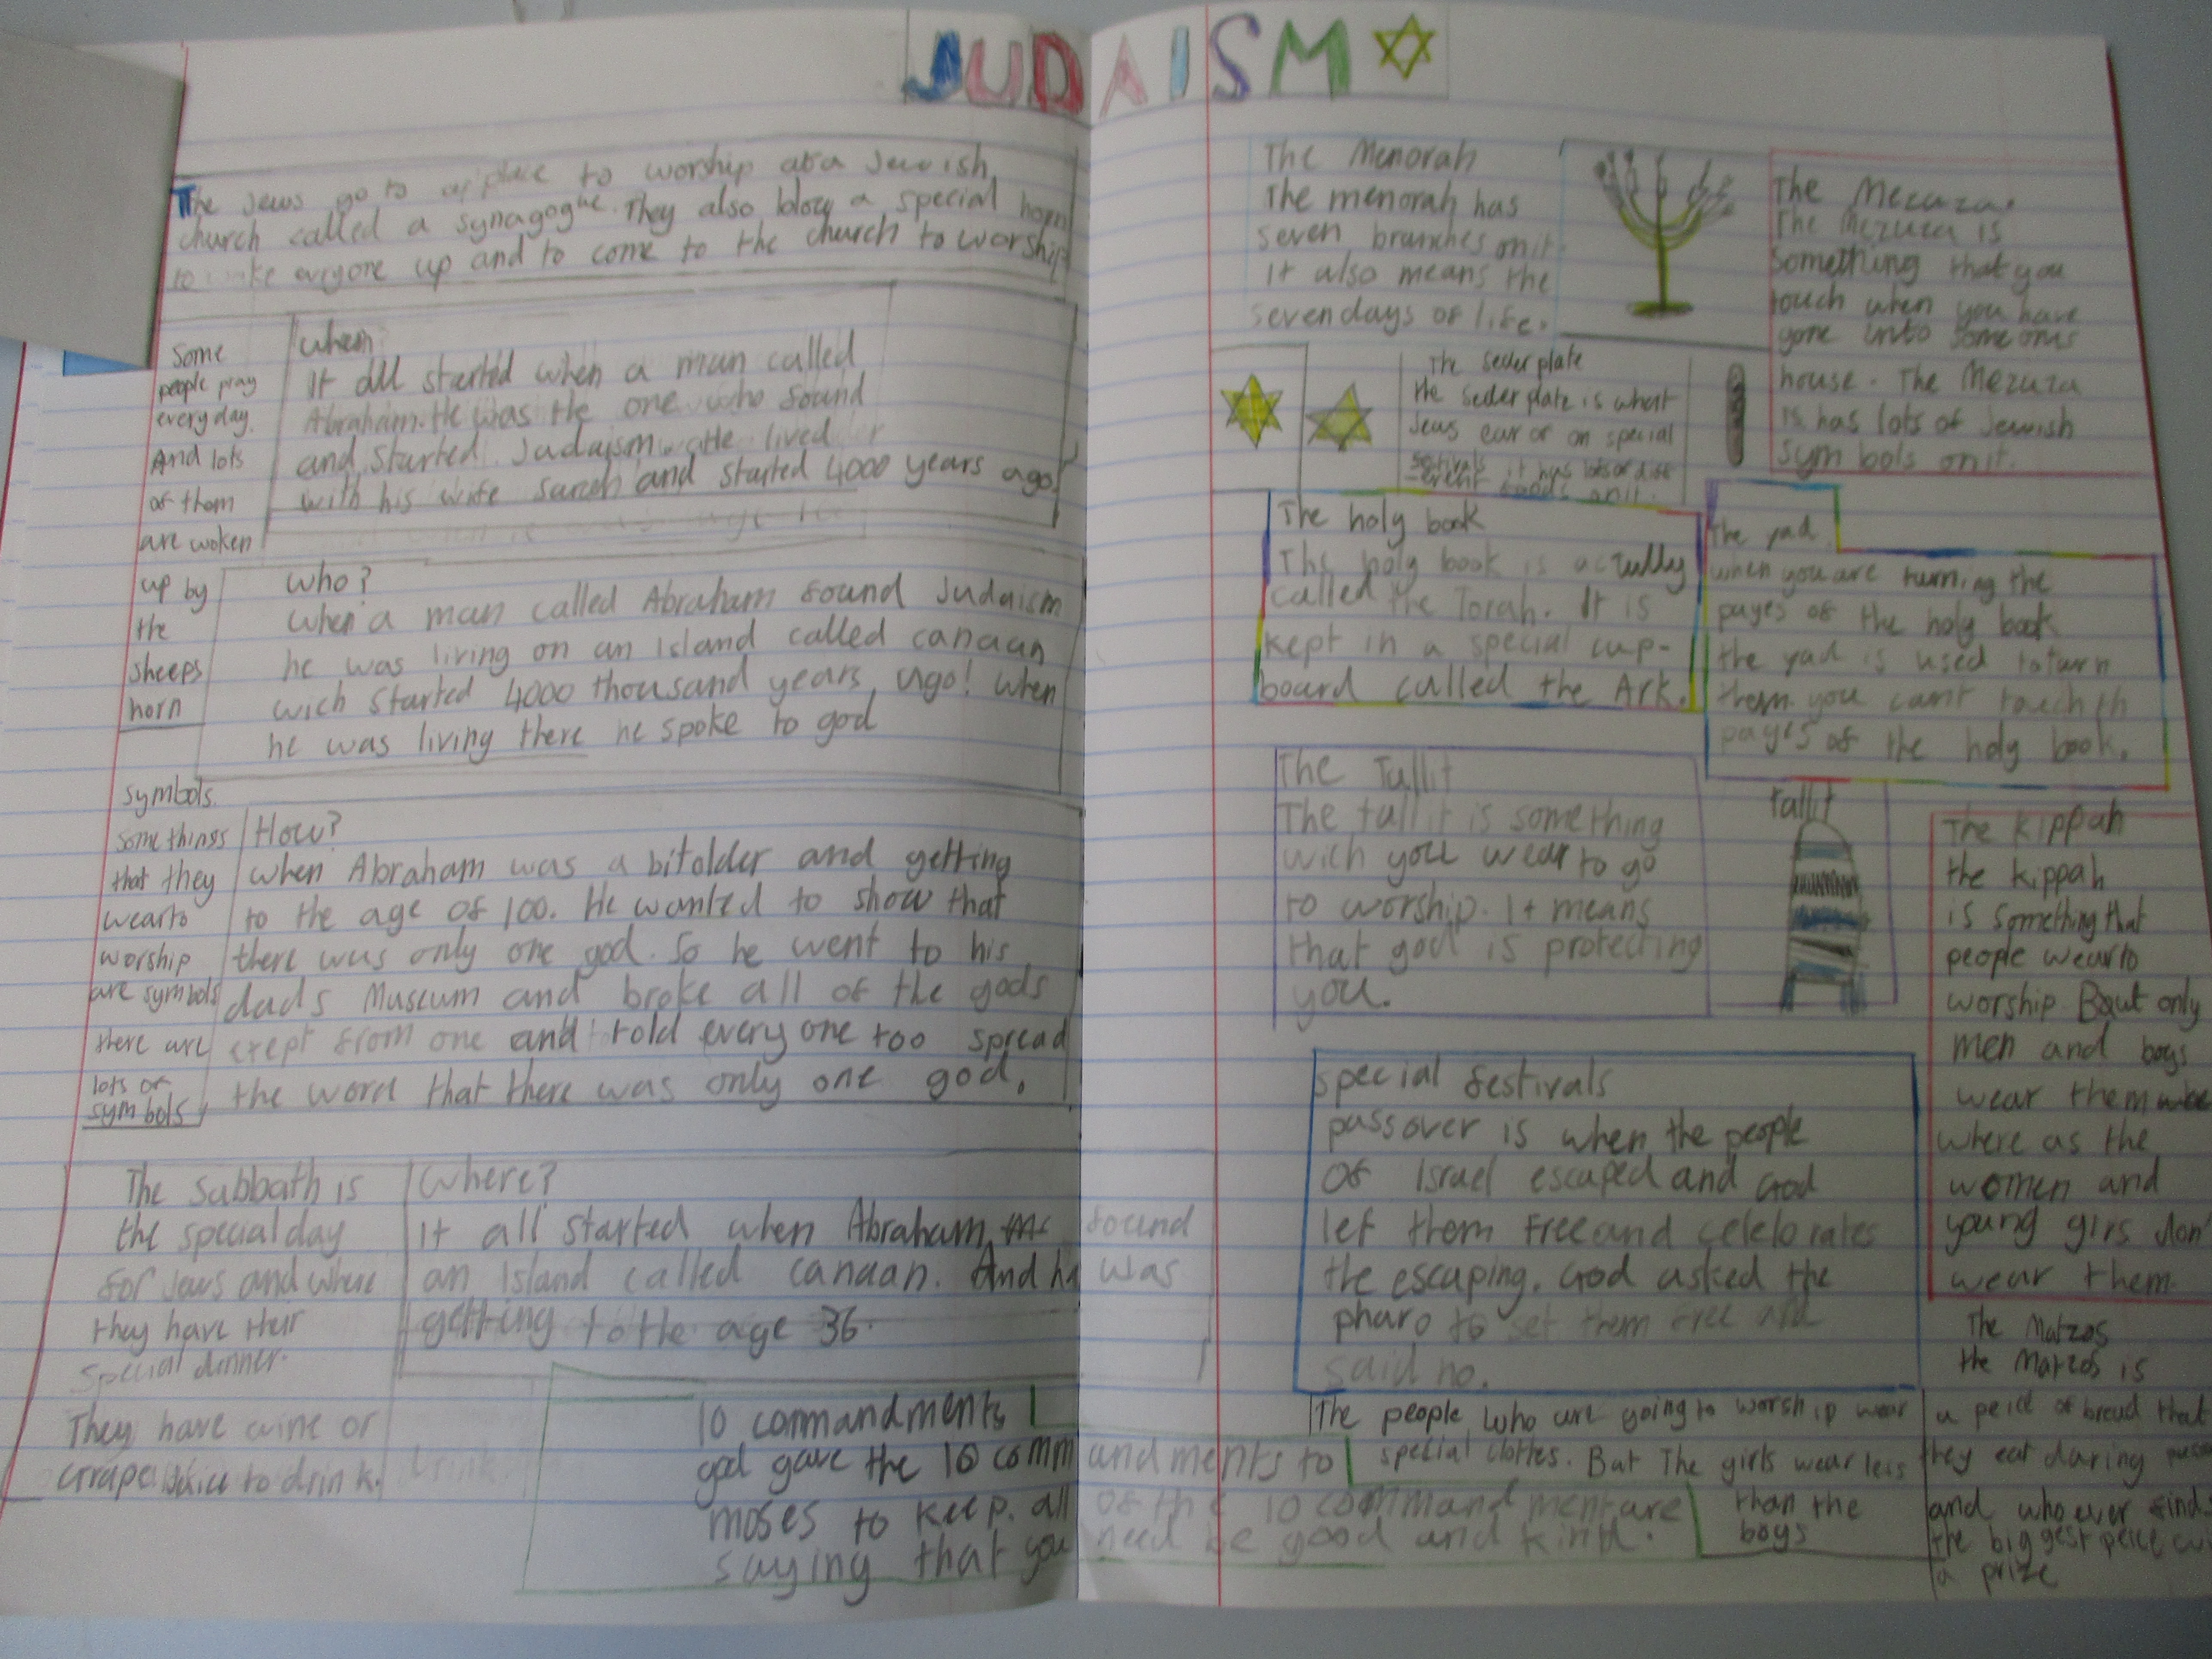 JUDAISM
The Jews go to a place to worship aka Jewish
church called a synagogue. They also blow a special horn
to wake eveyone up and to come to the church to worship
some
people pray
every day.
And lots
of them
are woken
up by
the
sheeps
horn
when
It all started when a man called
Abraham. He was the one who found
and started Judaism. He lived
with his wife Sarah and started 4000 years ago!
who?
when a man called Abraham found Judaism
he was living on an island called canaan
wich started 4000 thousand years ago! when
he was living there he spoke to god
symbols
some things
that they
wear to
worship
are symbols
there are
lots of
symbols
How?
when Abraham was a bit older and getting
to the age of 100. He wanted to show that
there was only one god. So he went to his
dads Museum and broke all of the gods
exept from one and told every one too spread
the word that there was only one god.
The sabbath is
the special day
for Jews and where
they have their
special dinner.
They have wine or
Grape Juice to drink.
drink
Where?
it all started when Abraham found
an island called canaan. And he was
getting to the age 36.
10 commandments
god gave the 10 commandments to
moses to keep. all of the 10 commandment are
saying that you need be good and kind.
The Menorah
The menorah has
seven branches on it.
It also means the
seven days of life.
The Mezuza.
The Mezuza is
something that you
touch when you have
gone into someones
house. The Mezuza
is has lots of Jewish
symbols on it.
The seder plate
the seder plate is what
Jews eat of on special
festivals it has lots of diff
-erent foods on it.
The holy book
The holy book is actully
called the Torah. It is
kept in a special cup-
board called the Ark.
The yad
when you are turning the
pages of the holy book
the yad is used to turn
them you cant touch th
pages of the holy book.
The Tallit
The tallit is something
wich you wear to go
to worship. It means
that god is protecting
you.
tallit
The Kippah
the kippah
is something that
people wear to
worship. But only
men and boys
wear them
where as the
women and
young girs don
wear them.
special festivals
passover is when the people
of Israel escaped and God
let them free and celebrates
the escaping. God asked the
pharo to set them free and
said no.
The people who are going to worship wear
special clothes. But The girls wear less
than the
boys
The Matzos
the Matzos is
a peice of bread that
they eat during
and who ever find
the biggest peice
a prize